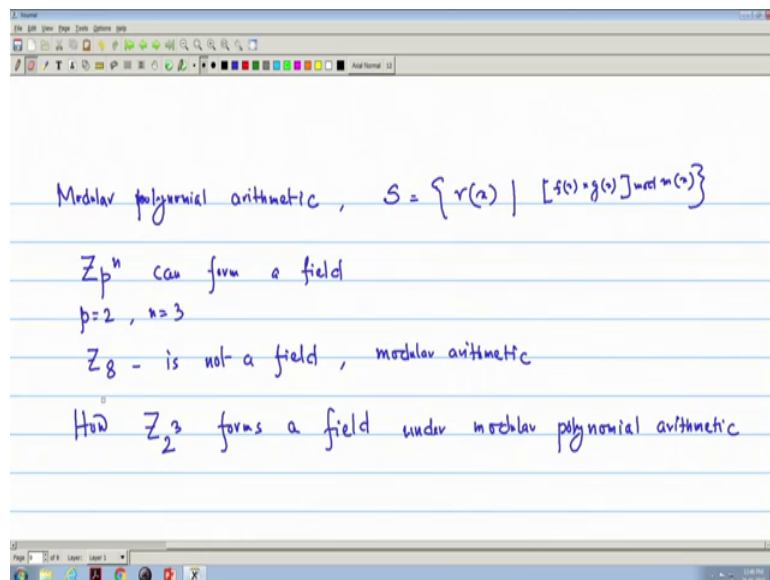 Xournal
File Edit View Page Tools Options Help
Arial Normal 12
Modular polynomial arithmetic , S = { r(x) | [f(x) * g(x)] mod m(x) }
Zpⁿ can form a field
p=2 , n=3
Z₈ - is not a field , modular arithmetic
How Z₂³ forms a field under modular polynomial arithmetic
Page 9 of 9 Layer: Layer 1